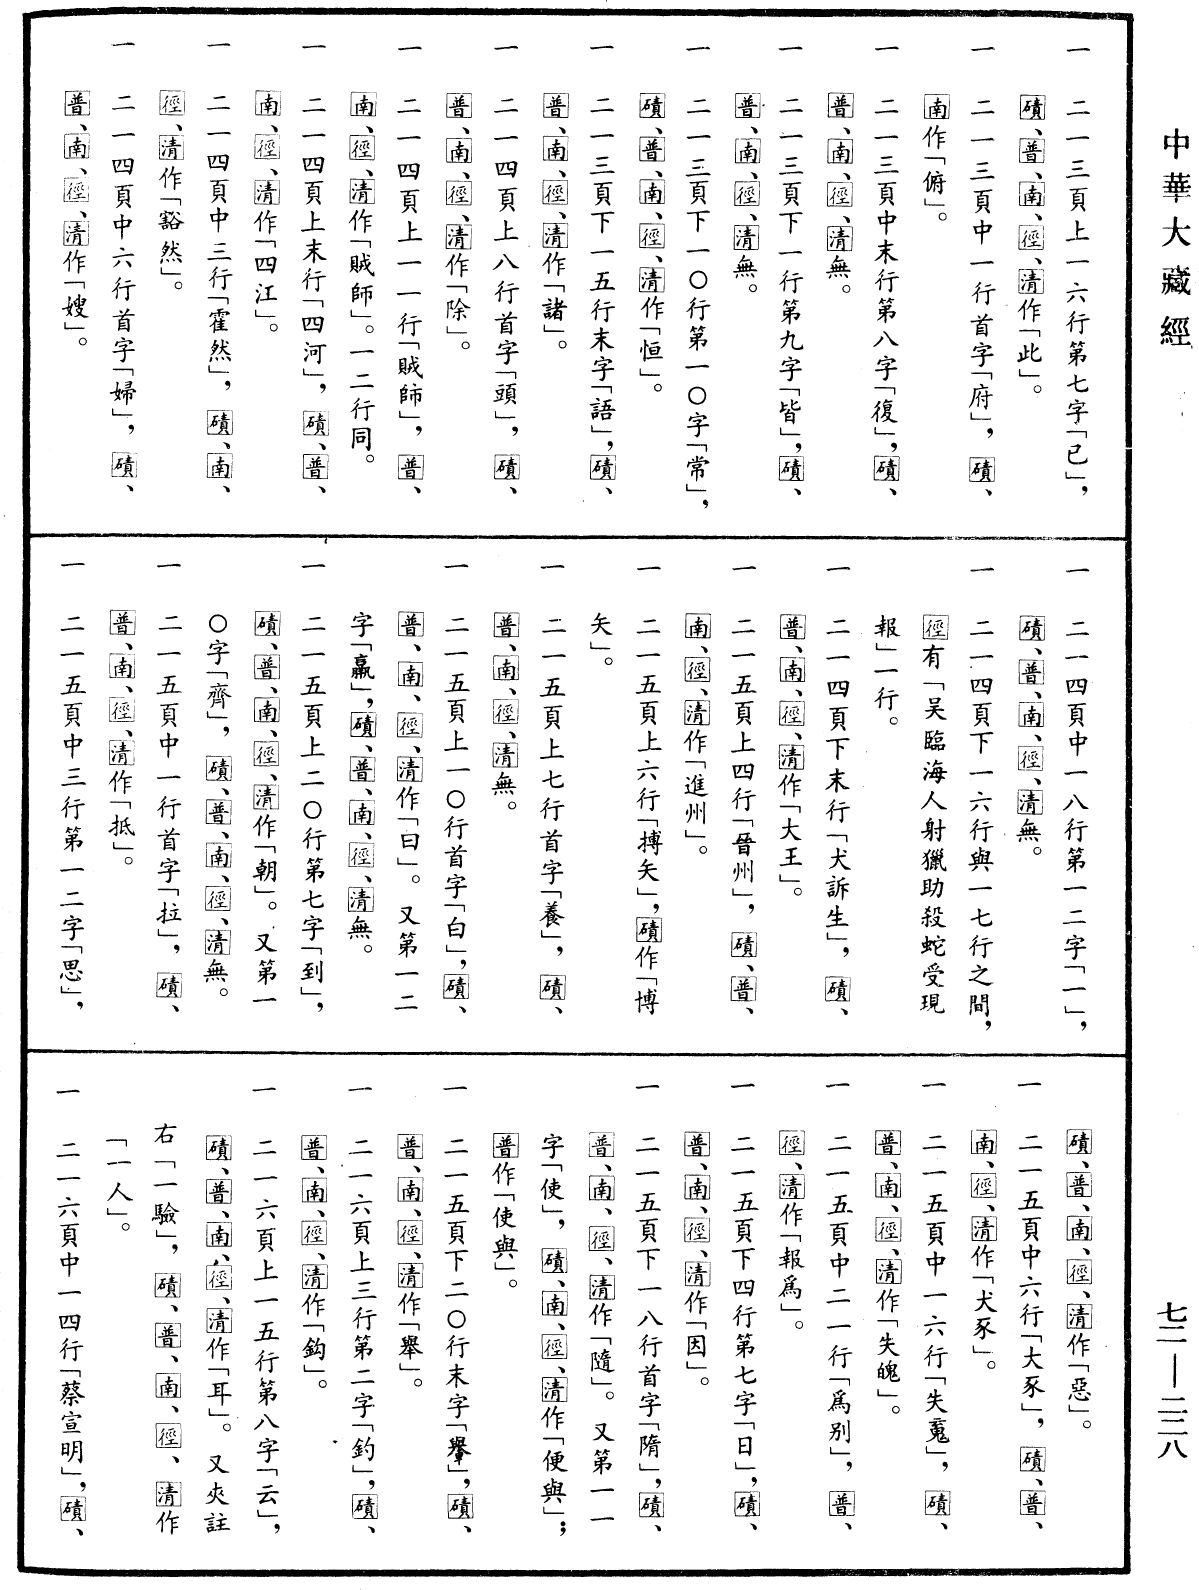 中華大藏經
一　二一三頁上一六行第七字「已」，
磧、普、南、徑、清作「此」。
一　二一三頁中一行首字「府」，磧、
南作「俯」。
一　二一三頁中末行第八字「復」，磧、
普、南、徑、清無。
一　二一三頁下一行第九字「皆」，磧、
普、南、徑、清無。
一　二一三頁下一〇行第一〇字「常」，
磧、普、南、徑、清作「恒」。
一　二一三頁下一五行末字「語」，磧、
普、南、徑、清作「諸」。
一　二一四頁上八行首字「頭」，磧、
普、南、徑、清作「除」。
一　二一四頁上一一行「賊師」，普、
南、徑、清作「賊師」。一二行同。
一　二一四頁上末行「四河」，磧、普、
南、徑、清作「四江」。
一　二一四頁中三行「霍然」，磧、南、
徑、清作「豁然」。
一　二一四頁中六行首字「婦」，磧、
普、南、徑、清作「嫂」。
一　二一四頁中一八行第一二字「一」，
磧、普、南、徑、清無。
一　二一四頁下一六行與一七行之間，
徑有「吴臨海人射獵助殺蛇受現
報」一行。
一　二一四頁下末行「犬訴生」，磧、
普、南、徑、清作「大王」。
一　二一五頁上四行「晉州」，磧、普、
南、徑、清作「進州」。
一　二一五頁上六行「搏矢」，磧作「博
矢」。
一　二一五頁上七行首字「養」，磧、
普、南、徑、清無。
一　二一五頁上一〇行首字「白」，磧、
普、南、徑、清作「曰」。又第一二
字「羸」，磧、普、南、徑、清無。
一　二一五頁上二〇行第七字「到」，
磧、普、南、徑、清作「朝」。又第一
〇字「齊」，磧、普、南、徑、清無。
一　二一五頁中一行首字「拉」，磧、
普、南、徑、清作「抵」。
一　二一五頁中三行第一二字「思」，
磧、普、南、徑、清作「惡」。
一　二一五頁中六行「大豕」，磧、普、
南、徑、清作「犬豕」。
一　二一五頁中一六行「失䰟」，磧、
普、南、徑、清作「失魄」。
一　二一五頁中二一行「爲别」，普、
徑、清作「報爲」。
一　二一五頁下四行第七字「日」，磧、
普、南、徑、清作「因」。
一　二一五頁下一八行首字「隋」，磧、
普、南、徑、清作「隨」。又第一一
字「使」，磧、南、徑、清作「便與」；
普作「使與」。
一　二一五頁下二〇行末字「轝」，磧、
普、南、徑、清作「舉」。
一　二一六頁上三行第二字「釣」，磧、
普、南、徑、清作「鈎」。
一　二一六頁上一五行第八字「云」，
磧、普、南、徑、清作「耳」。又夾註
右「一驗」，磧、普、南、徑、清作
「一人」。
一　二一六頁中一四行「蔡宣明」，磧、
七二—二二八